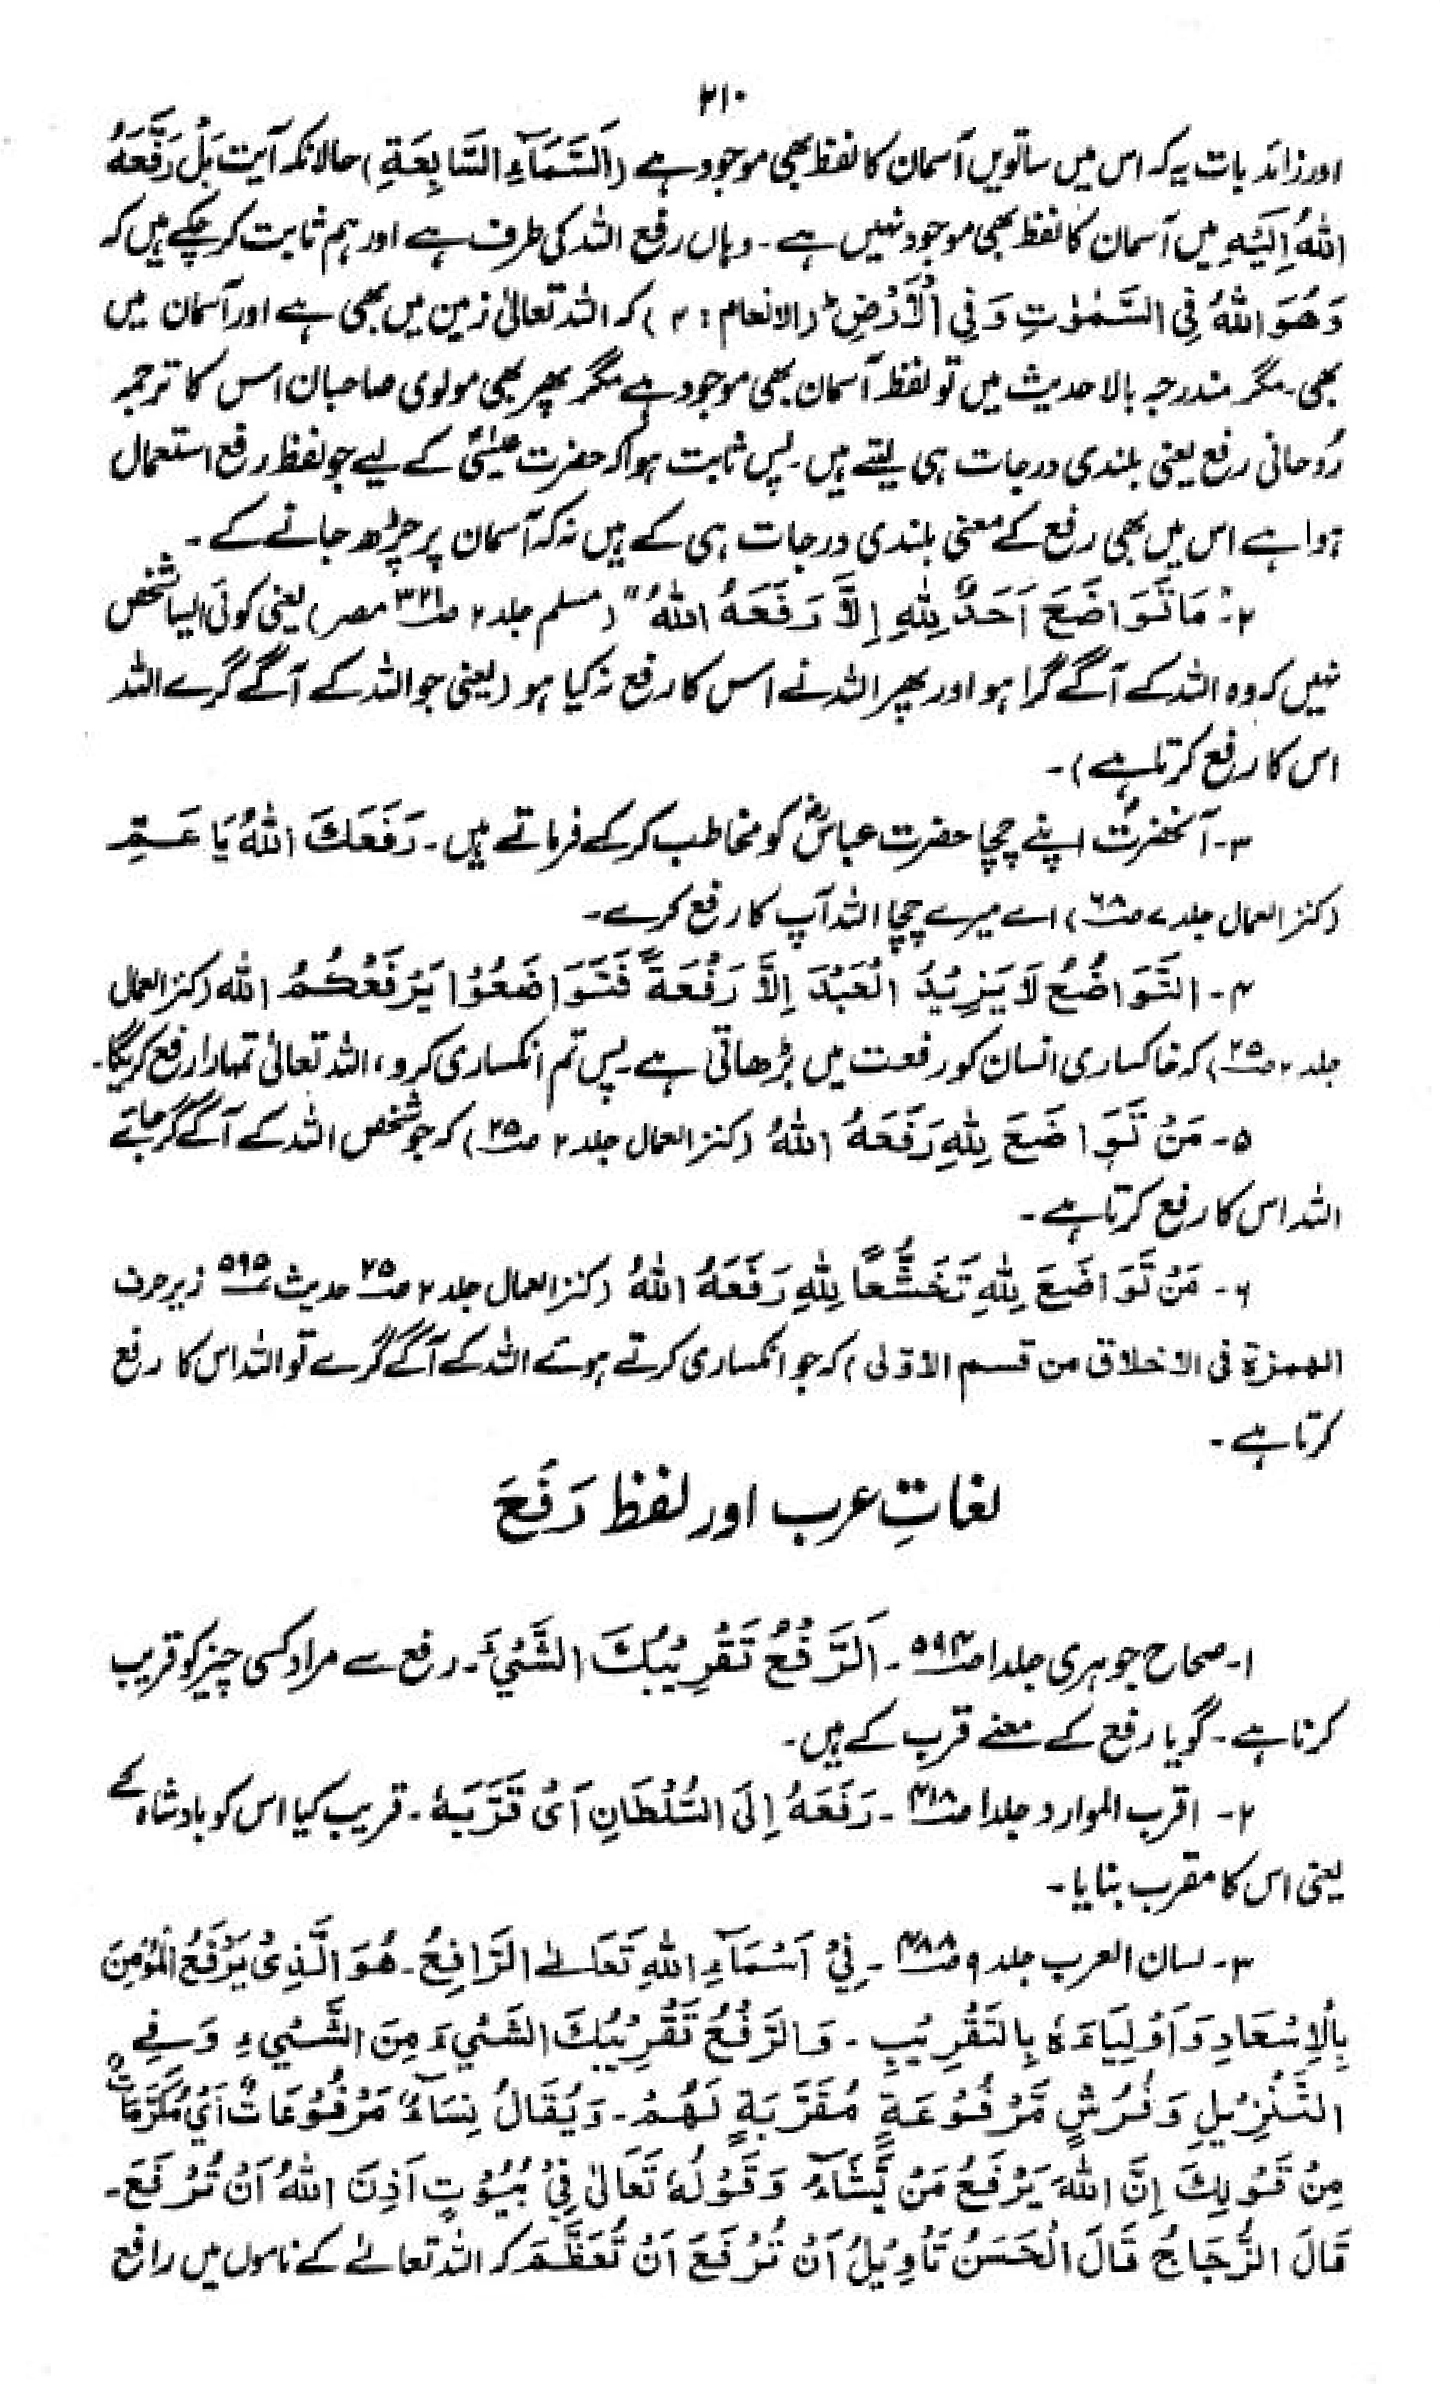 ۲۱۰
اور زائد بات یہ کہ اس میں ساتویں آسمان کا لفظ بھی موجود ہے (اَلسَّمَآءِ السَّابِعَةِ) حالانکہ آیت بَلْ رَّفَعَهُ
اللهُ اِلَيْهِ میں آسمان کا لفظ بھی موجود نہیں ہے۔ وہاں رفع اللہ کی طرف ہے اور ہم ثابت کر چکے ہیں کہ
وَهُوَ اللهُ فِي السَّمٰوٰتِ وَفِي الْاَرْضِ ؕ (الانعام : ۴) کہ اللہ تعالیٰ زمین میں بھی ہے اور آسمان میں
بھی۔ مگر مندرجہ بالا حدیث میں تو لفظ آسمان بھی موجود ہے مگر پھر بھی مولوی صاحبان اس کا ترجمہ
رُوحانی رفع یعنی بلندی درجات ہی لیتے ہیں۔ پس ثابت ہوا کہ حضرت عیسٰیؑ کے لیے جو لفظ رفع استعمال
ہوا ہے اس میں بھی رفع کے معنی بلندی درجات ہی کے ہیں نہ کہ آسمان پر چڑھ جانے کے ۔
۲۔ مَا تَوَاضَعَ اَحَدٌ لِلّٰهِ اِلَّا رَفَعَهُ اللهُ" (مسلم جلد ۲ ص۳۲۱ مصر) یعنی کوئی ایسا شخص
نہیں کہ وہ اللہ کے آگے گرا ہو اور پھر اللہ نے اس کا رفع نہ کیا ہو (یعنی جو اللہ کے آگے گرے اللہ
اس کا رفع کرتا ہے) ۔
۳۔ آنحضرتؐ اپنے چچا حضرت عباسؓ کو مخاطب کر کے فرماتے ہیں۔ رَفَعَكَ اللهُ يَا عَمِّ
(کنز العمال جلد ۷ ص۶۸) اے میرے چچا اللہ آپ کا رفع کرے۔
۴۔ اَلتَّوَاضُعُ لَا يَزِيْدُ الْعَبْدَ اِلَّا رَفْعَةً فَتَوَاضَعُوْا يَرْفَعْكُمُ الله (کنز العمال
جلد ۲ ص۲۵) کہ خاکساری انسان کو رفعت میں بڑھاتی ہے۔ پس تم انکساری کرو، اللہ تعالیٰ تمہارا رفع کریگا۔
۵۔ مَنْ تَوَاضَعَ لِلّٰهِ رَفَعَهُ اللهُ (کنز العمال جلد ۲ ص۲۵) کہ جو شخص اللہ کے آگے گر جائے
اللہ اس کا رفع کرتا ہے ۔
۶۔ مَنْ تَوَاضَعَ لِلّٰهِ تَخَشُّعًا لِلّٰهِ رَفَعَهُ اللهُ (کنز العمال جلد ۲ ص۲۵ حدیث ۵۹۵ زیر حرف
الهمزة فی الاخلاق من قسم الاوّلی) کہ جو انکساری کرتے ہوئے اللہ کے آگے گرے تو اللہ اس کا رفع
کرتا ہے ۔
لغاتِ عرب اور لفظ رَفَعَ
۱۔ صحاح جوہری جلد۱ ص۵۹۴ ۔ اَلرَّفْعُ تَقْرِيْبُكَ الشَّيْئَ ۔ رفع سے مراد کسی چیز کو قریب
کرنا ہے ۔ گویا رفع کے معنے قرب کے ہیں۔
۲۔ اقرب الموارد جلد۱ ص۴۱۸ ۔ رَفَعَهُ اِلَى السُّلْطَانِ اَىْ قَرَّبَهٗ ۔ قریب کیا اس کو بادشاہ کے
یعنی اس کا مقرب بنایا ۔
۳۔ لسان العرب جلد ۹ ص۴۸۸ ۔ فِيْ اَسْمَآءِ اللهِ تَعَالٰے الرَّافِعُ ۔ هُوَ الَّذِىْ يَرْفَعُ الْمُؤْمِنَ
بِالْاِسْعَادِ وَاَوْلِيَاءَهٗ بِالتَّقْرِيْبِ ۔ وَالرَّفْعُ تَقْرِيْبُكَ الشَّيْءَ مِنَ الشَّيْءِ وَفِي
التَّنْزِيْلِ وَفُرُشٍ مَّرْفُوْعَةٍ مُقَرَّبَةٍ لَهُمْ ۔ وَيُقَالُ نِسَآءٌ مَرْفُوْعَاتٌ اَيْ مُكَرَّمَاتٌ
مِنْ قَوْلِكَ اِنَّ اللهَ يَرْفَعُ مَنْ يَّشَآءُ وَقَوْلُهٗ تَعَالٰى فِيْ بُيُوْتٍ اَذِنَ اللهُ اَنْ تُرْفَعَ ۔
قَالَ الزُّجَاجُ قَالَ الْحَسَنُ تَأْوِيْلُ اَنْ تُرْفَعَ اَنْ تُعَظَّمَ کہ اللہ تعالےٰ کے ناموں میں رافع